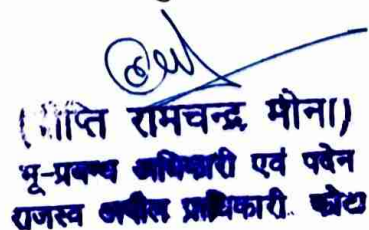 ( ाप्ति रामचन्द्र मीना)
भू-प्रबन्ध अधिकारी एवं पदेन
राजस्व अपील प्राधिकारी.. कोटा